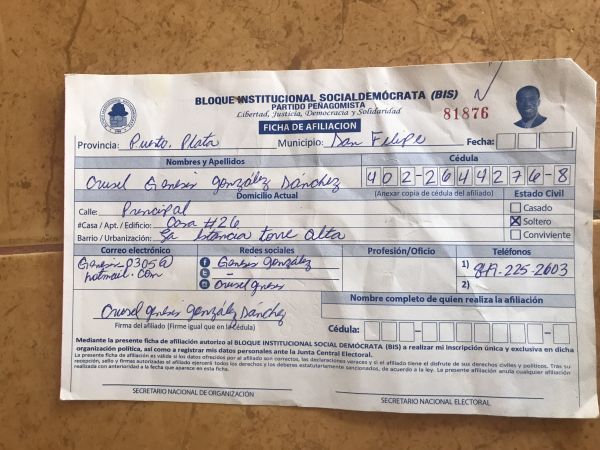 BLOQUE INSTITUCIONAL SOCIALDEMÓCRATA (BIS)
PARTIDO PEÑAGOMISTA
Libertad, Justicia, Democracia y Solidaridad
81876
FICHA DE AFILIACION
Provincia: Puerto Plata Municipio: San Felipe Fecha:
Nombres y Apellidos Cédula
Orusel Genesis González Sánchez 402-2644276-8
(Anexar copia de cédula del afiliado)
Domicilio Actual Estado Civil
Calle: Principal Casado
#Casa / Apt. / Edificio: Casa #26 X Soltero
Barrio / Urbanización: La torre alta Conviviente
Correo electrónico Redes sociales Profesión/Oficio Teléfonos
Genesis-P305@ Genesis González 1) 849-225-2603
hotmail.com - 2)
Orusel genesis
Nombre completo de quien realiza la afiliación
Orusel genesis gonzález Sánchez
Firma del afiliado (Firme igual que en la cédula) Cédula:
Mediante la presente ficha de afiliación autorizo al BLOQUE INSTITUCIONAL SOCIAL DEMÓCRATA (BIS) a realizar mi inscripción única y exclusiva en dicha
organización política, así como a registrar mis datos personales ante la Junta Central Electoral.
La presente afiliación es válida si los datos ofrecidos por el afiliado son correctos, las declaraciones veraces y él el afiliado tiene el disfrute de sus derechos civiles y políticos. Tras su
recepción, sello y firmas autorizadas el afiliado ejercerá todos los derechos y los deberes estatutariamente sancionados, de acuerdo a la ley. La presente afiliación anula cualquier afiliación
realizada con anterioridad a la fecha que aparece en esta ficha.
SECRETARIO NACIONAL DE ORGANIZACIÓN SECRETARIO NACIONAL ELECTORAL